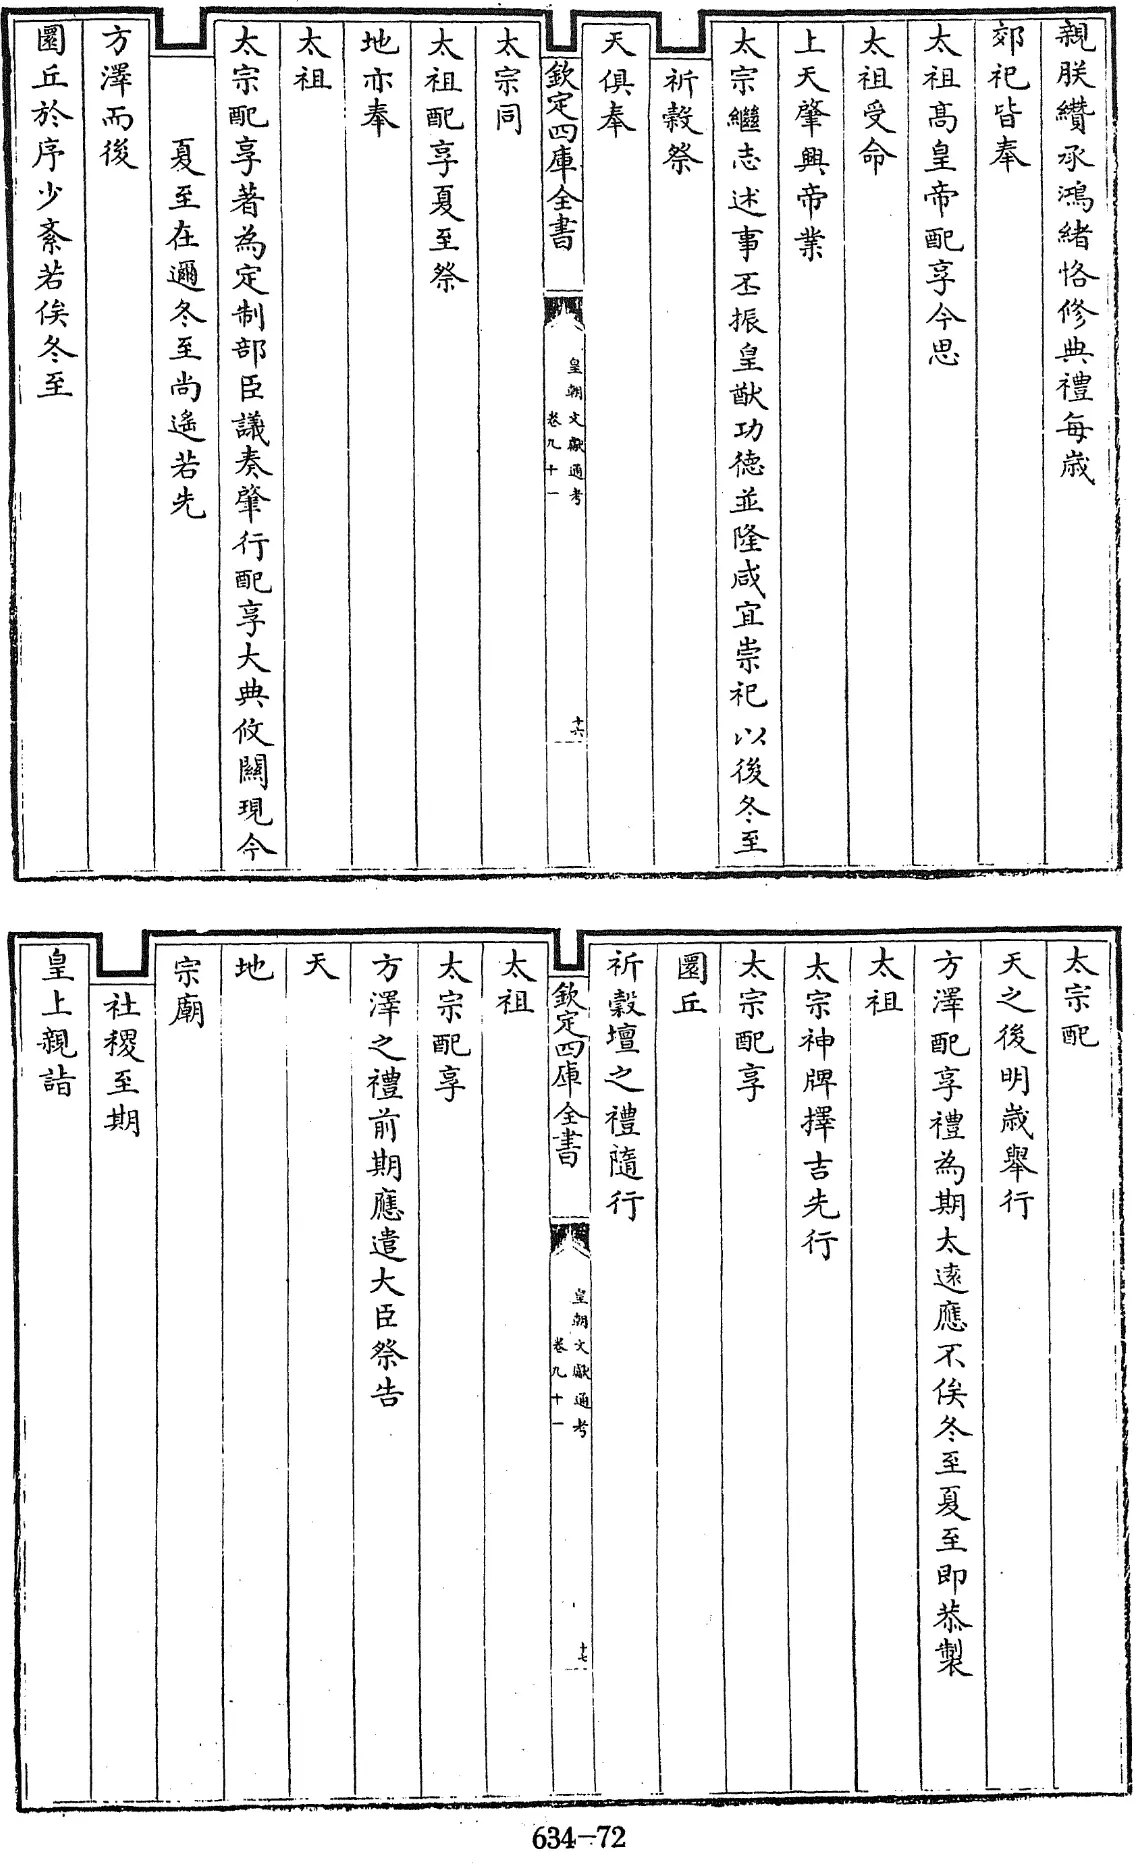 親朕纘承鴻緒恪修典禮每歲
郊祀皆奉
太祖高皇帝配享今思
太祖受命
上天肇興帝業
太宗繼志述事丕振皇猷功德並隆咸宜崇祀以後冬至
祈穀祭
天俱奉
欽定四庫全書
皇朝文獻通考
卷九十一
十六
太宗同
太祖配享夏至祭
地亦奉
太祖
太宗配享著為定制部臣議奏肇行配享大典攸關現今
夏至在邇冬至尚遙若先
方澤而後
圜丘於序少紊若俟冬至
太宗配
天之後明歲舉行
方澤配享禮為期太遠應不俟冬至夏至即恭製
太祖
太宗神牌擇吉先行
太宗配享
圜丘
祈穀壇之禮隨行
欽定四庫全書
皇朝文獻通考
卷九十一
十七
太祖
太宗配享
方澤之禮前期應遣大臣祭告
天
地
宗廟
社稷至期
皇上親詣
634-72